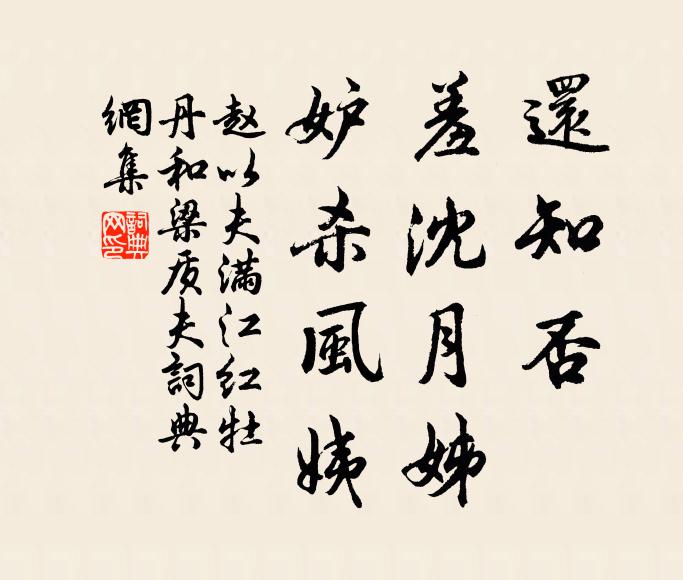 還知否
羞沈月姊
妒杀風姨
赵以夫满江红牡
丹和梁质夫詞典
網集
詞典网印